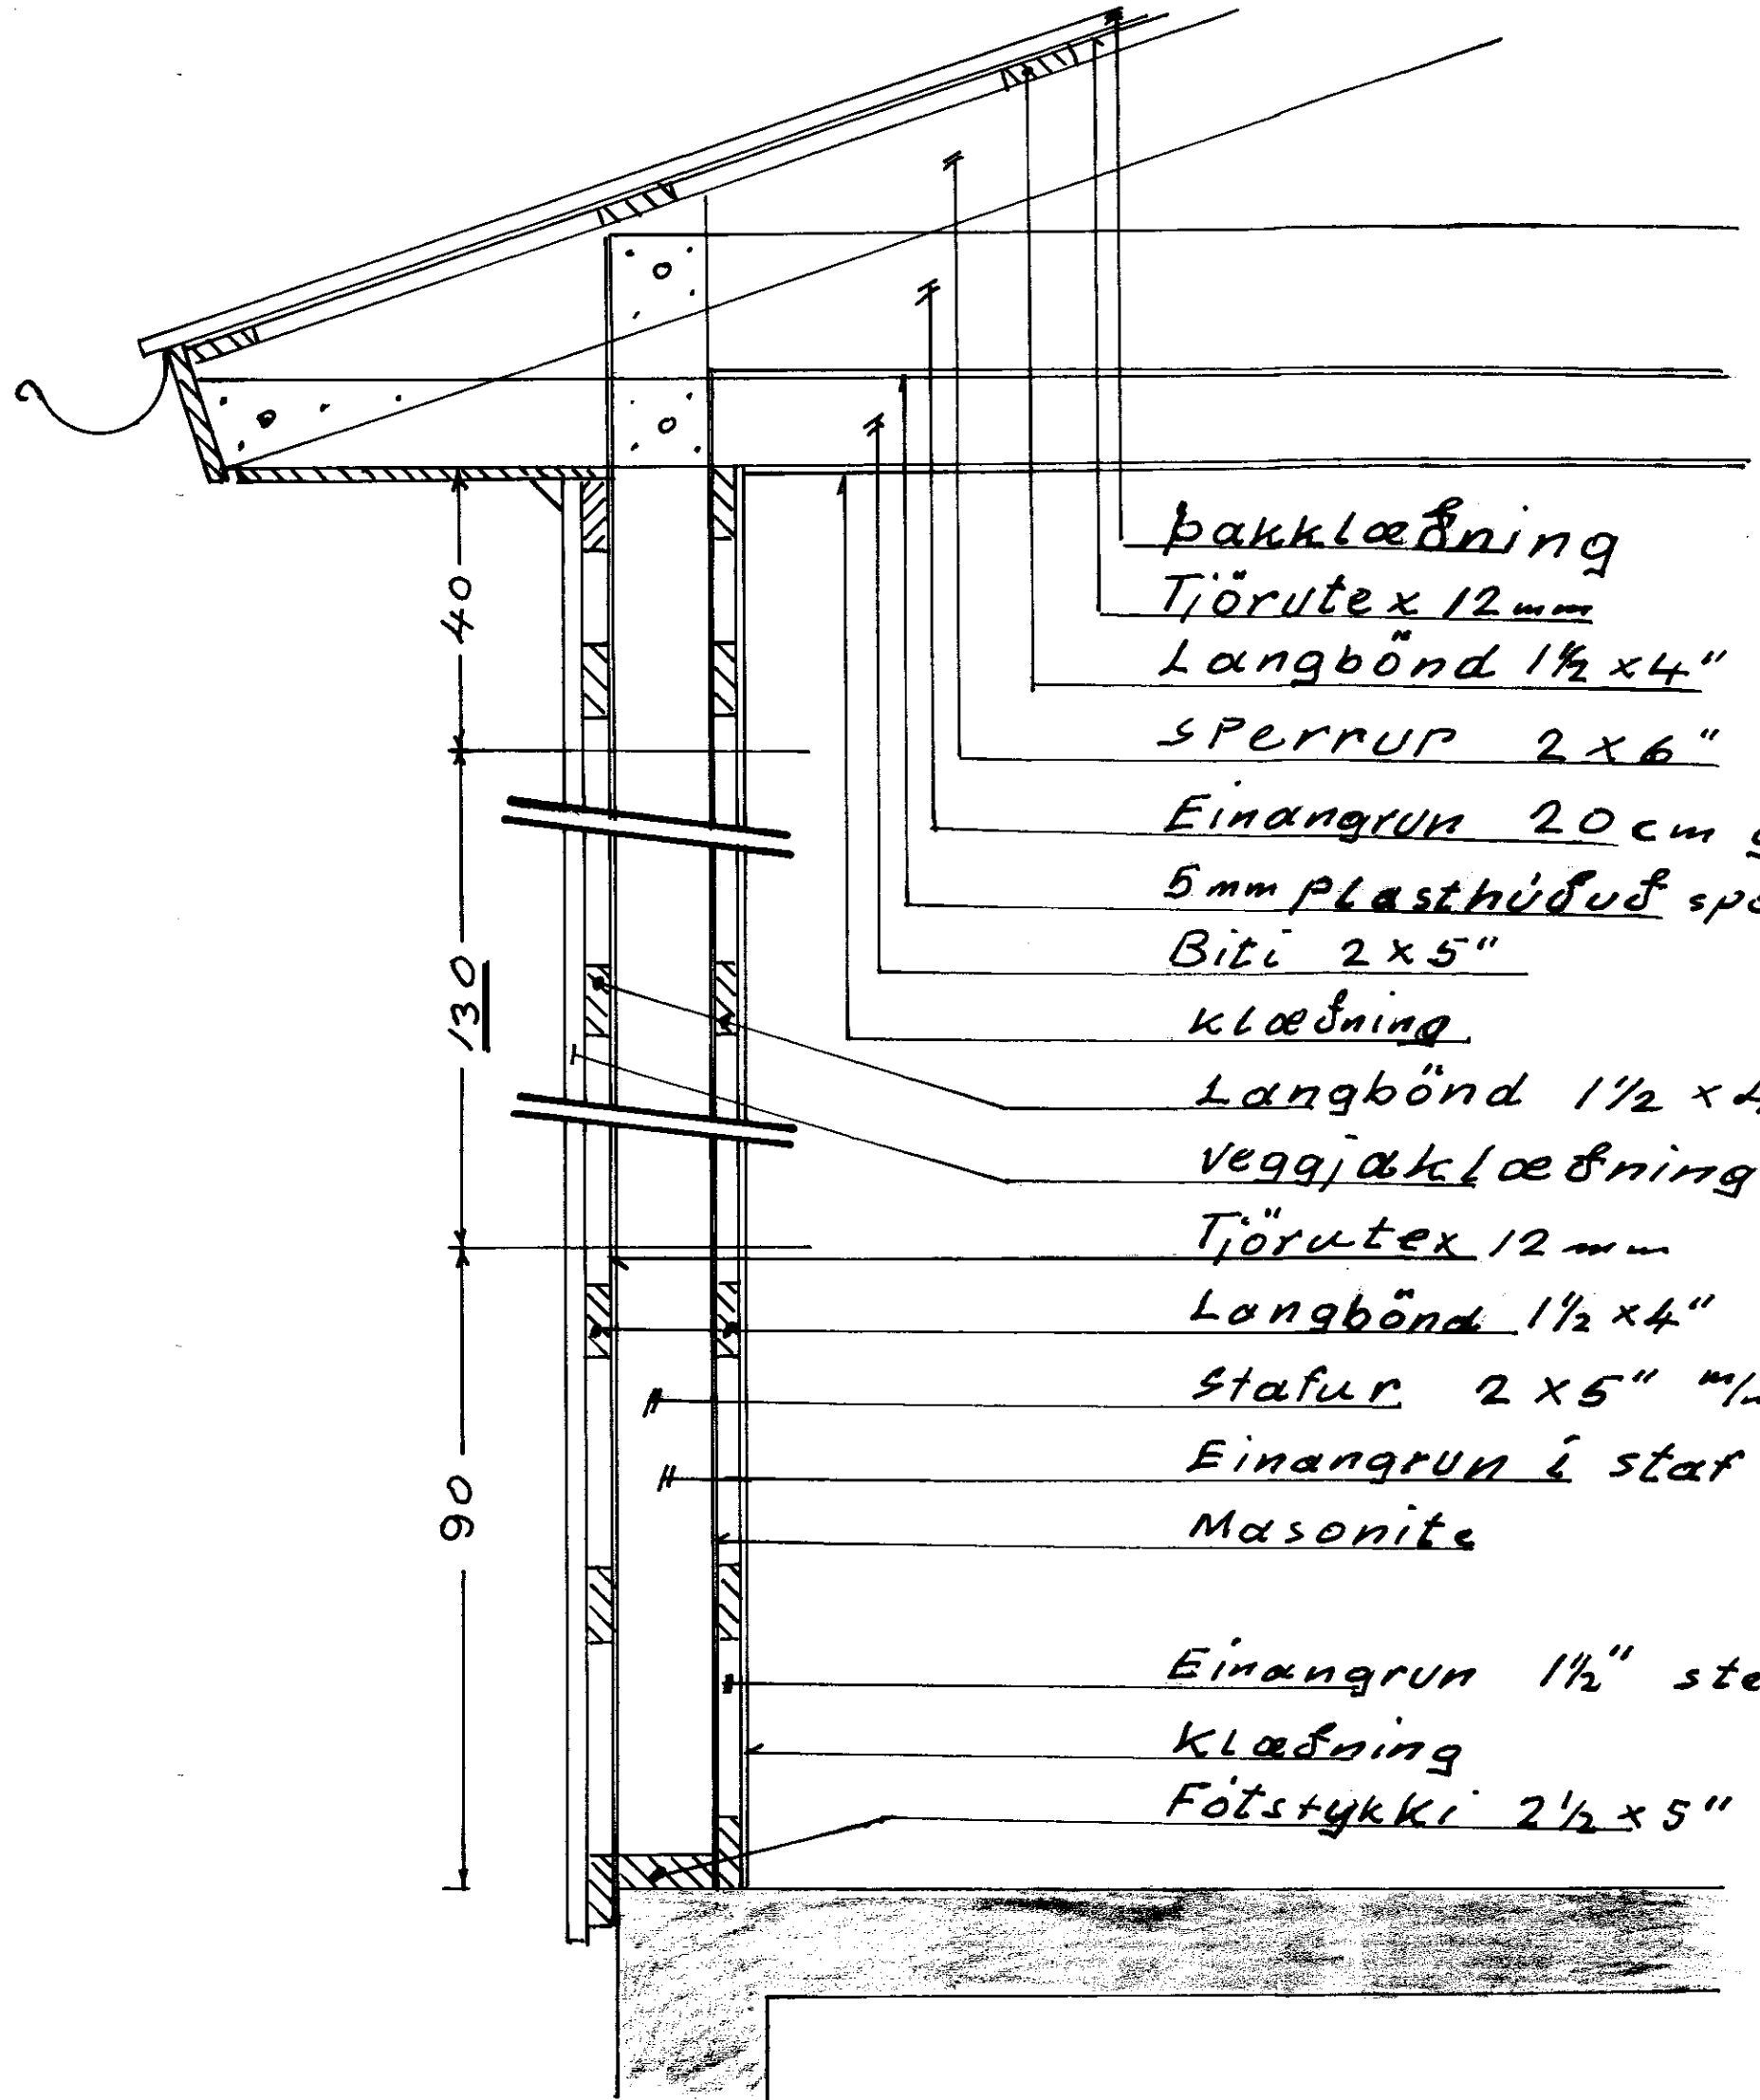 Þakklæðning
Tjörutex 12 mm
Langbönd 1½ x 4"
Sperrur 2 x 6"
Einangrun 20 cm
5 mm plasthúðuð
Biti 2 x 5"
Klæðning
Langbönd 1½ x 4
Veggjaklæðning
Tjörutex 12 mm
Langbönd 1½ x 4"
Stafur 2 x 5"
Einangrun í staf
Masonite
Einangrun 1½"
Klæðning
Fótstykki 2½ x 5"
40
130
90